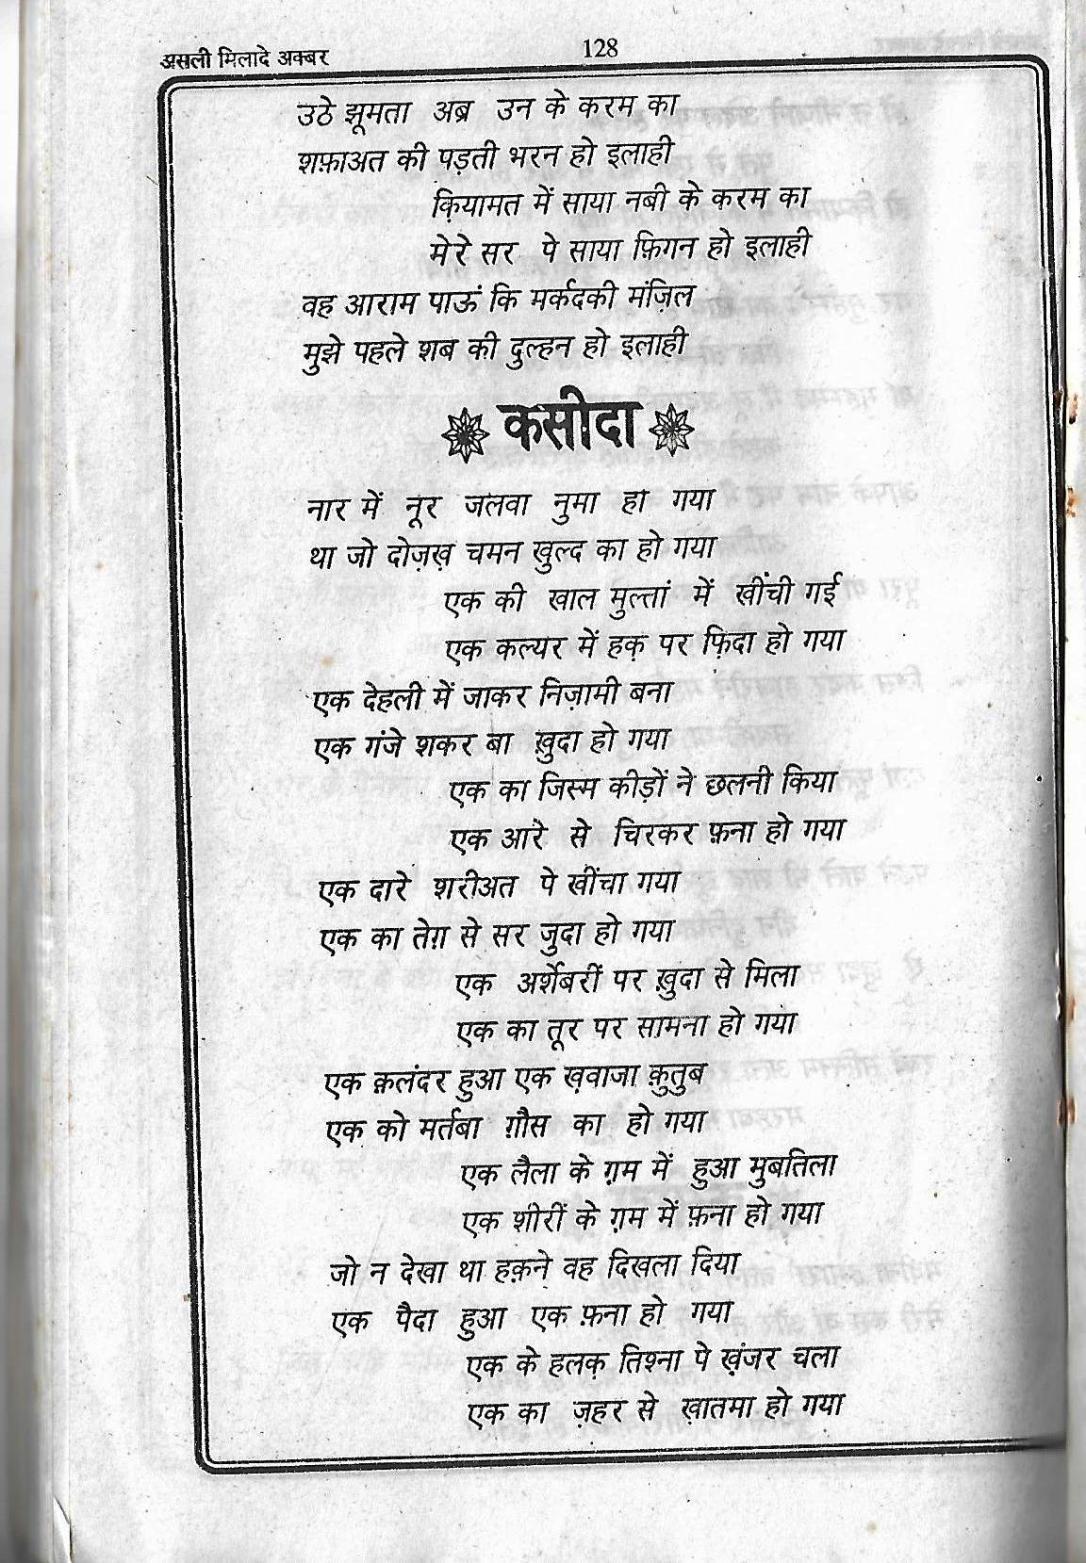 असली मिलादे अक्बर
128
उठे झूमता अब्र उन के करम का
शफ़ाअत की पड़ती भरन हो इलाही
क़ियामत में साया नबी के करम का
मेरे सर पे साया फ़िगन हो इलाही
वह आराम पाऊं कि मर्कदकी मंज़िल
मुझे पहले शब की दुल्हन हो इलाही
कसीदा
नार में नूर जलवा नुमा हो गया
था जो दोज़ख़ चमन खुल्द का हो गया
एक की खाल मुल्तां में खींची गई
एक कल्यर में हक़ पर फ़िदा हो गया
एक देहली में जाकर निज़ामी बना
एक गंजे शकर बा ख़ुदा हो गया
एक का जिस्म कीड़ों ने छलनी किया
एक आरे से चिरकर फ़ना हो गया
एक दारे शरीअत पे खींचा गया
एक का तेग़ से सर जुदा हो गया
एक अर्शेबरीं पर ख़ुदा से मिला
एक का तूर पर सामना हो गया
एक क़लंदर हुआ एक ख़वाजा क़ुतुब
एक को मर्तबा ग़ौस का हो गया
एक लैला के ग़म में हुआ मुबतिला
एक शीरीं के ग़म में फ़ना हो गया
जो न देखा था हक़ने वह दिखला दिया
एक पैदा हुआ एक फ़ना हो गया
एक के हलक़ तिश्ना पे ख़ंजर चला
एक का ज़हर से ख़ातमा हो गया